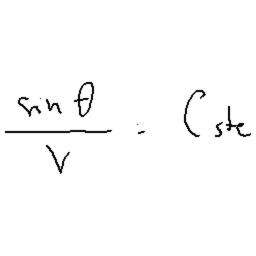 sin θ / V = Cste